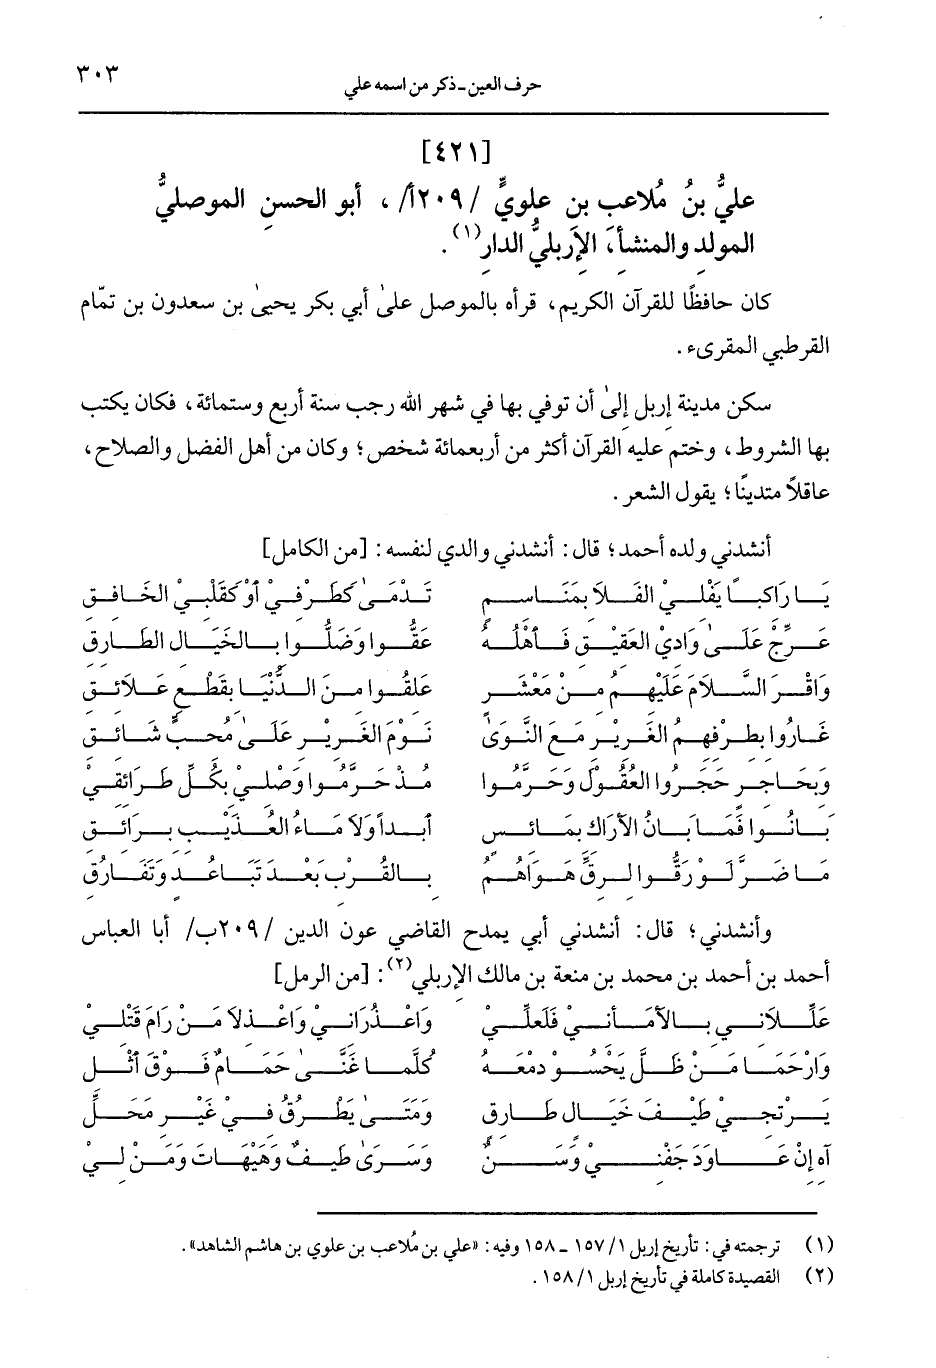 حرف العين - ذكر من اسمه علي ٣٠٣
[٤٢١]
عليُّ بنُ مُلاعبِ بنِ علويٍّ /٢٠٩أ/، أبو الحسنِ الموصليُّ
المولدِ والمنشأ، الإربليُّ الدارِ(١).
كان حافظًا للقرآن الكريم، قرأه بالموصل علىٰ أبي بكر يحيىٰ بن سعدون بن تمّام
القرطبي المقرىء.
سكن مدينة إربل إلىٰ أن توفي بها في شهر الله رجب سنة أربع وستمائة، فكان يكتب
بها الشروط، وختم عليه القرآن أكثر من أربعمائة شخص؛ وكان من أهل الفضل والصلاح،
عاقلاً متدينًا؛ يقول الشعر.
أنشدني ولده أحمد؛ قال: أنشدني والدي لنفسه: [من الكامل]
يَا رَاكبًا يَفْلِيْ الفَلاَ بمَنَاسمٍ تَدْمَىٰ كَطَرْفيْ أوْ كَقَلْبيْ الخَافقِ
عَرِّجْ عَلَىٰ وَادِيْ العَقيْقِ فَأَهْلُهُ عَقُّوا وَضَلُّوا بالخَيَال الطَارقِ
وَاقْرَ السَّلاَمَ عَلَيْهمُ منْ مَعْشَرٍ عَلقُوا منَ الدُّنْيَا بقَطْعِ عَلاَئقِ
غَارُوا بطَرْفهمُ الغَريْرِ مَعَ النَّوَىٰ نَوْمَ الغَريْرِ عَلَىٰ مُحبٍّ شَائقِ
وَبحَاجرٍ حَجَرُوا العُقُوْلَ وَحَرَّمُوا مُذْ حَرَّمُوا وَصْليْ بكُلِّ طَرَائقيْ
بَانُوا فَمَا بَانُ الأرَاك بمَائسٍ أبداً وَلاَ مَاءُ العُذَيْبِ برَائقِ
مَا ضَرَّ لَوْ رَقُّوا لرقِّ هَوَاهُمُ بالقُرْبِ بَعْدَ تَبَاعُدٍ وَتَفَارُقِ
وأنشدني؛ قال: أنشدني أبي يمدح القاضي عون الدين /٢٠٩ب/ أبا العباس
أحمد بن أحمد بن محمد بن منعة بن مالك الإربلي(٢): [من الرمل]
عَلِّلاَنيْ بالأمَأنيْ فَلَعلِّيْ وَاعْذُرَانيْ وَاعْذلاَ مَنْ رَامَ قَتْليْ
وَارْحَمَا مَنْ ظَلَّ يَحْسُوْ دمْعَهُ كُلَّمَا غَنَّىٰ حَمَامٌ فَوْقَ أثْلِ
يَرْتجيْ طَيْفَ خَيَالٍ طَارقٍ وَمَتَىٰ يَطْرُقُ فيْ غَيْرِ مَحَلِّ
آه إنْ عَاوَدَ جَفْنيْ وَسَنٌ وَسَرَىٰ طَيفٌ وَهَيْهَاتَ وَمَنْ ليْ
(١) ترجمته في: تأريخ إربل ١/ ١٥٧ - ١٥٨ وفيه: «علي بن مُلاعب بن علوي بن هاشم الشاهد».
(٢) القصيدة كاملة في تأريخ إربل ١/ ١٥٨.